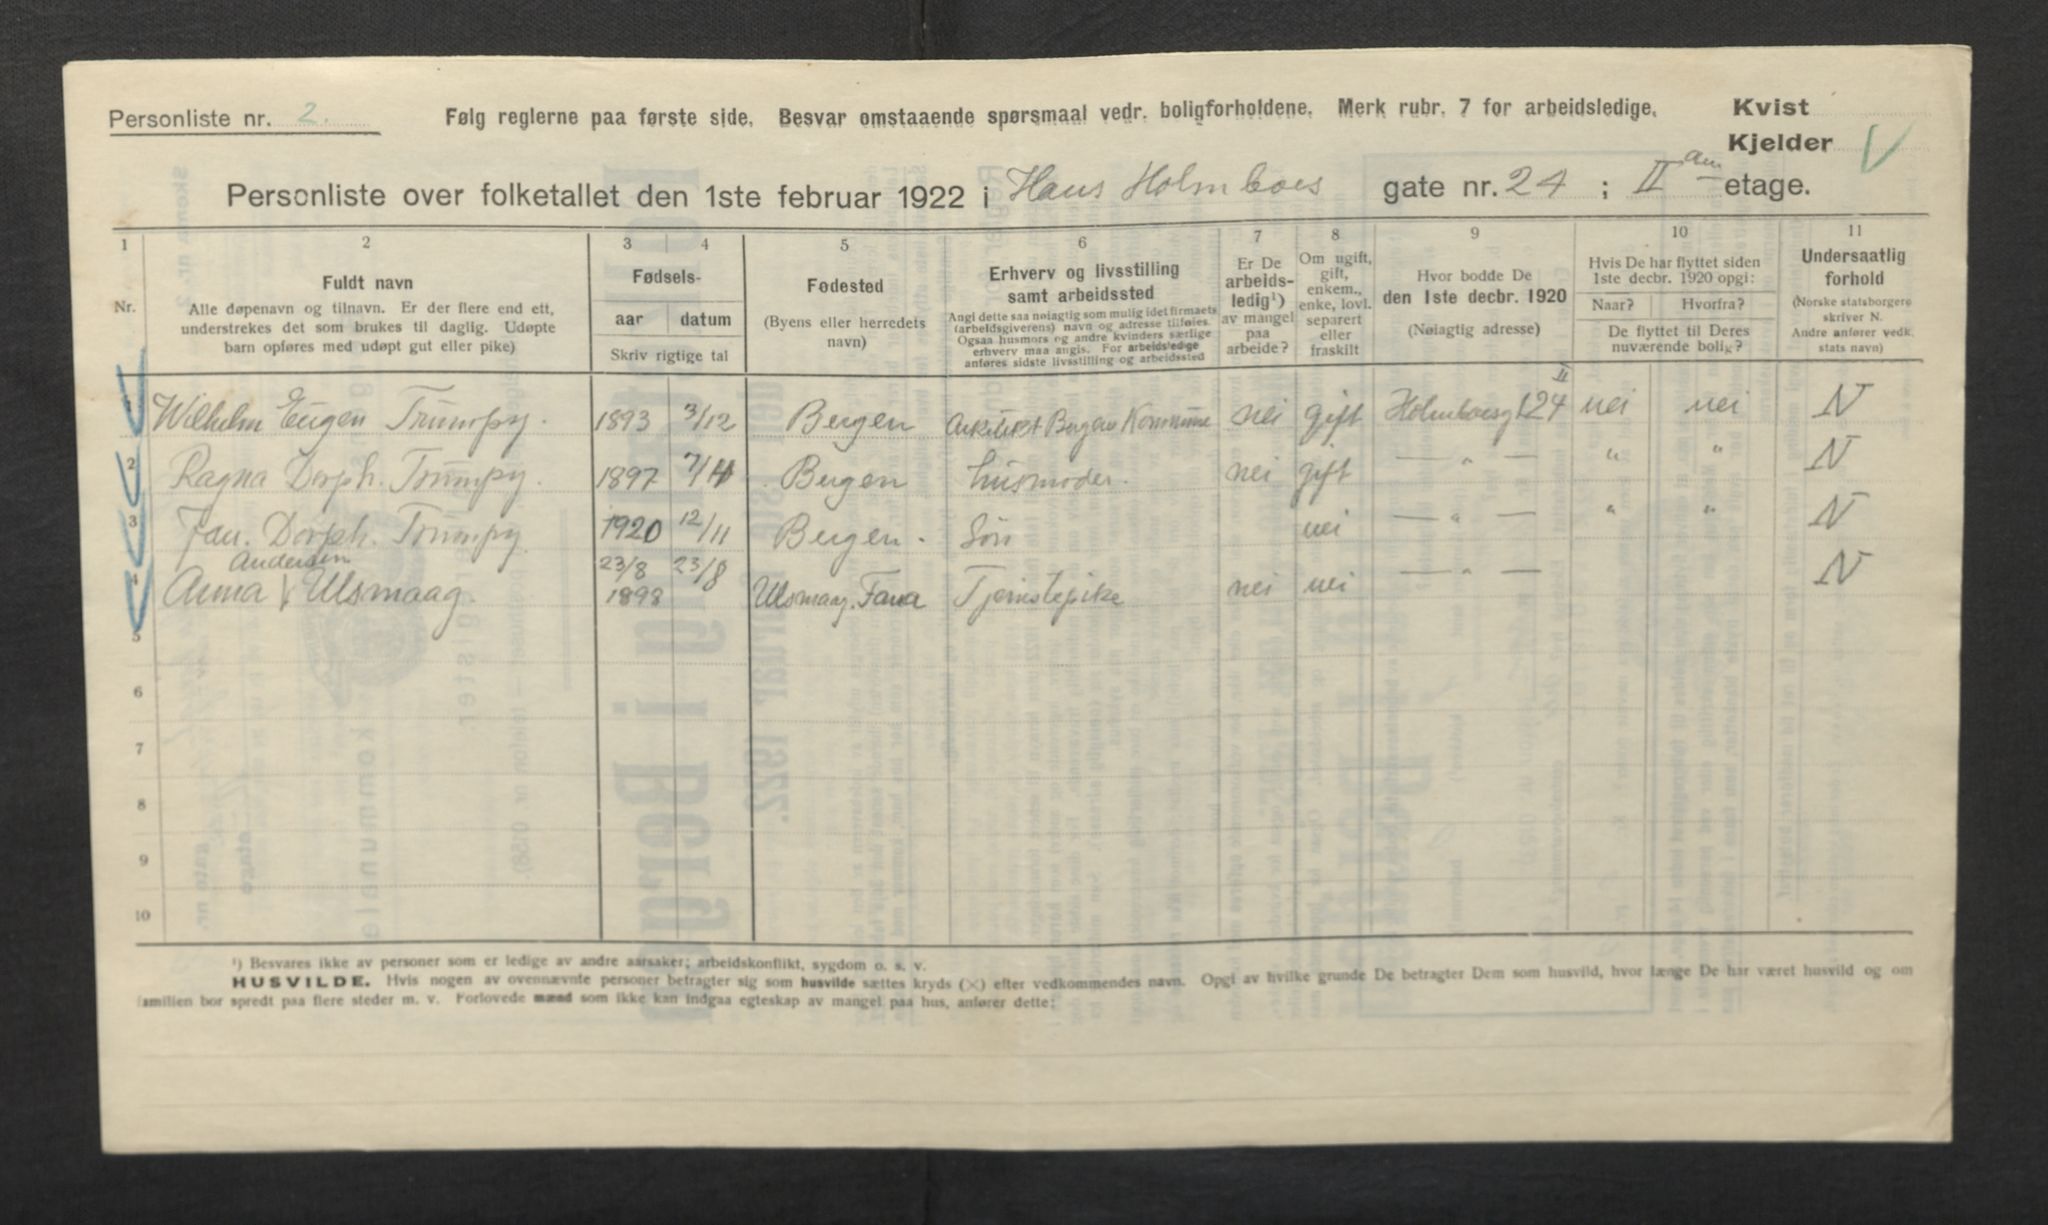 Personliste nr. 2. Følg reglerne paa første side. Besvar omstaaende spørsmaal vedr. boligforholdene. Merk rubr. 7 for arbeidsledige. Kvist
Kjelder V
Personliste over folketallet den 1ste februar 1922 i Hans Holmboes gate nr. 24 ; II den etage.
1 2 3 4 5 6 7 8 9 10 11
Nr.
Fuldt navn
Alle døpenavn og tilnavn. Er der flere end ett,
understrekes det som brukes til daglig. Udøpte
barn opføres med udøpt gut eller pike)
Fødsels-
aar datum
Skriv rigtige tal
Fødested
(Byens eller herredets
navn)
Erhverv og livsstilling
samt arbeidssted
Angi dette saa nøiagtig som mulig idet firmaets
(arbeidsgiverens) navn og adresse tilføies.
Ogsaa husmors og andre kvinders særlige
erhverv maa angis. For arbeidsledige
anføres sidste livsstilling og arbeidssted
Er De
arbeids-
ledig¹)
av mangel
paa
arbeide?
Om ugift,
gift,
enkem.,
enke, lovl.
separert
eller
fraskilt
Hvor bodde De
den 1ste decbr. 1920
(Nøiagtig adresse)
Hvis De har flyttet siden
1ste decbr. 1920 opgi:
Naar? Hvorfra?
De flyttet til Deres
nuværende bolig?
Undersaatlig
forhold
(Norske statsborgere
skriver N.
Andre anfører vedk.
stats navn)
1 Wilhelm Eugen Trumpy. 1893 3/12 Bergen Arkitekt Bergens Kommune nei gift Holmboesgt 24 II nei nei N
2 Ragna Dorph. Trumpy. 1897 7/4 Bergen husmoder. nei gift — " — " " N
3 Jan. Dorph. Trumpy 1920 12/11 Bergen. Søn nei — " — " " N
Andersen 23/8 23/8
4 Anna Ulsmaag. 1898 Ulsmaag. Fana Tjenistepike nei nei — " — N
5
6
7
8
9
10
¹) Besvares ikke av personer som er ledige av andre aarsaker; arbeidskonflikt, sygdom o. s. v.
HUSVILDE. Hvis nogen av ovennævnte personer betragter sig som husvilde sættes kryds (×) efter vedkommendes navn. Opgi av hvilke grunde De betragter Dem som husvild, hvor længe De har været husvild og om
familien bor spredt paa flere steder m. v. Forlovede mænd som ikke kan indgaa egteskap av mangel paa hus, anfører dette: